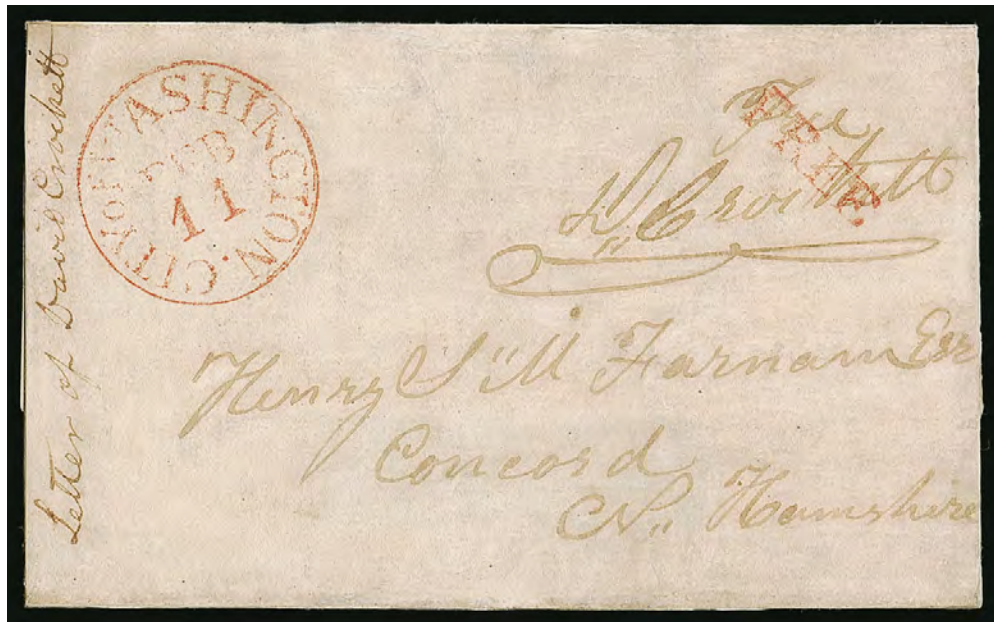 Letter of David Crockett
CITY OF WASHINGTON.
FEB
11
Free
FREE
D,, Crockett
Henry S,, M Farnam Esr
Concord
N,, Hamshire